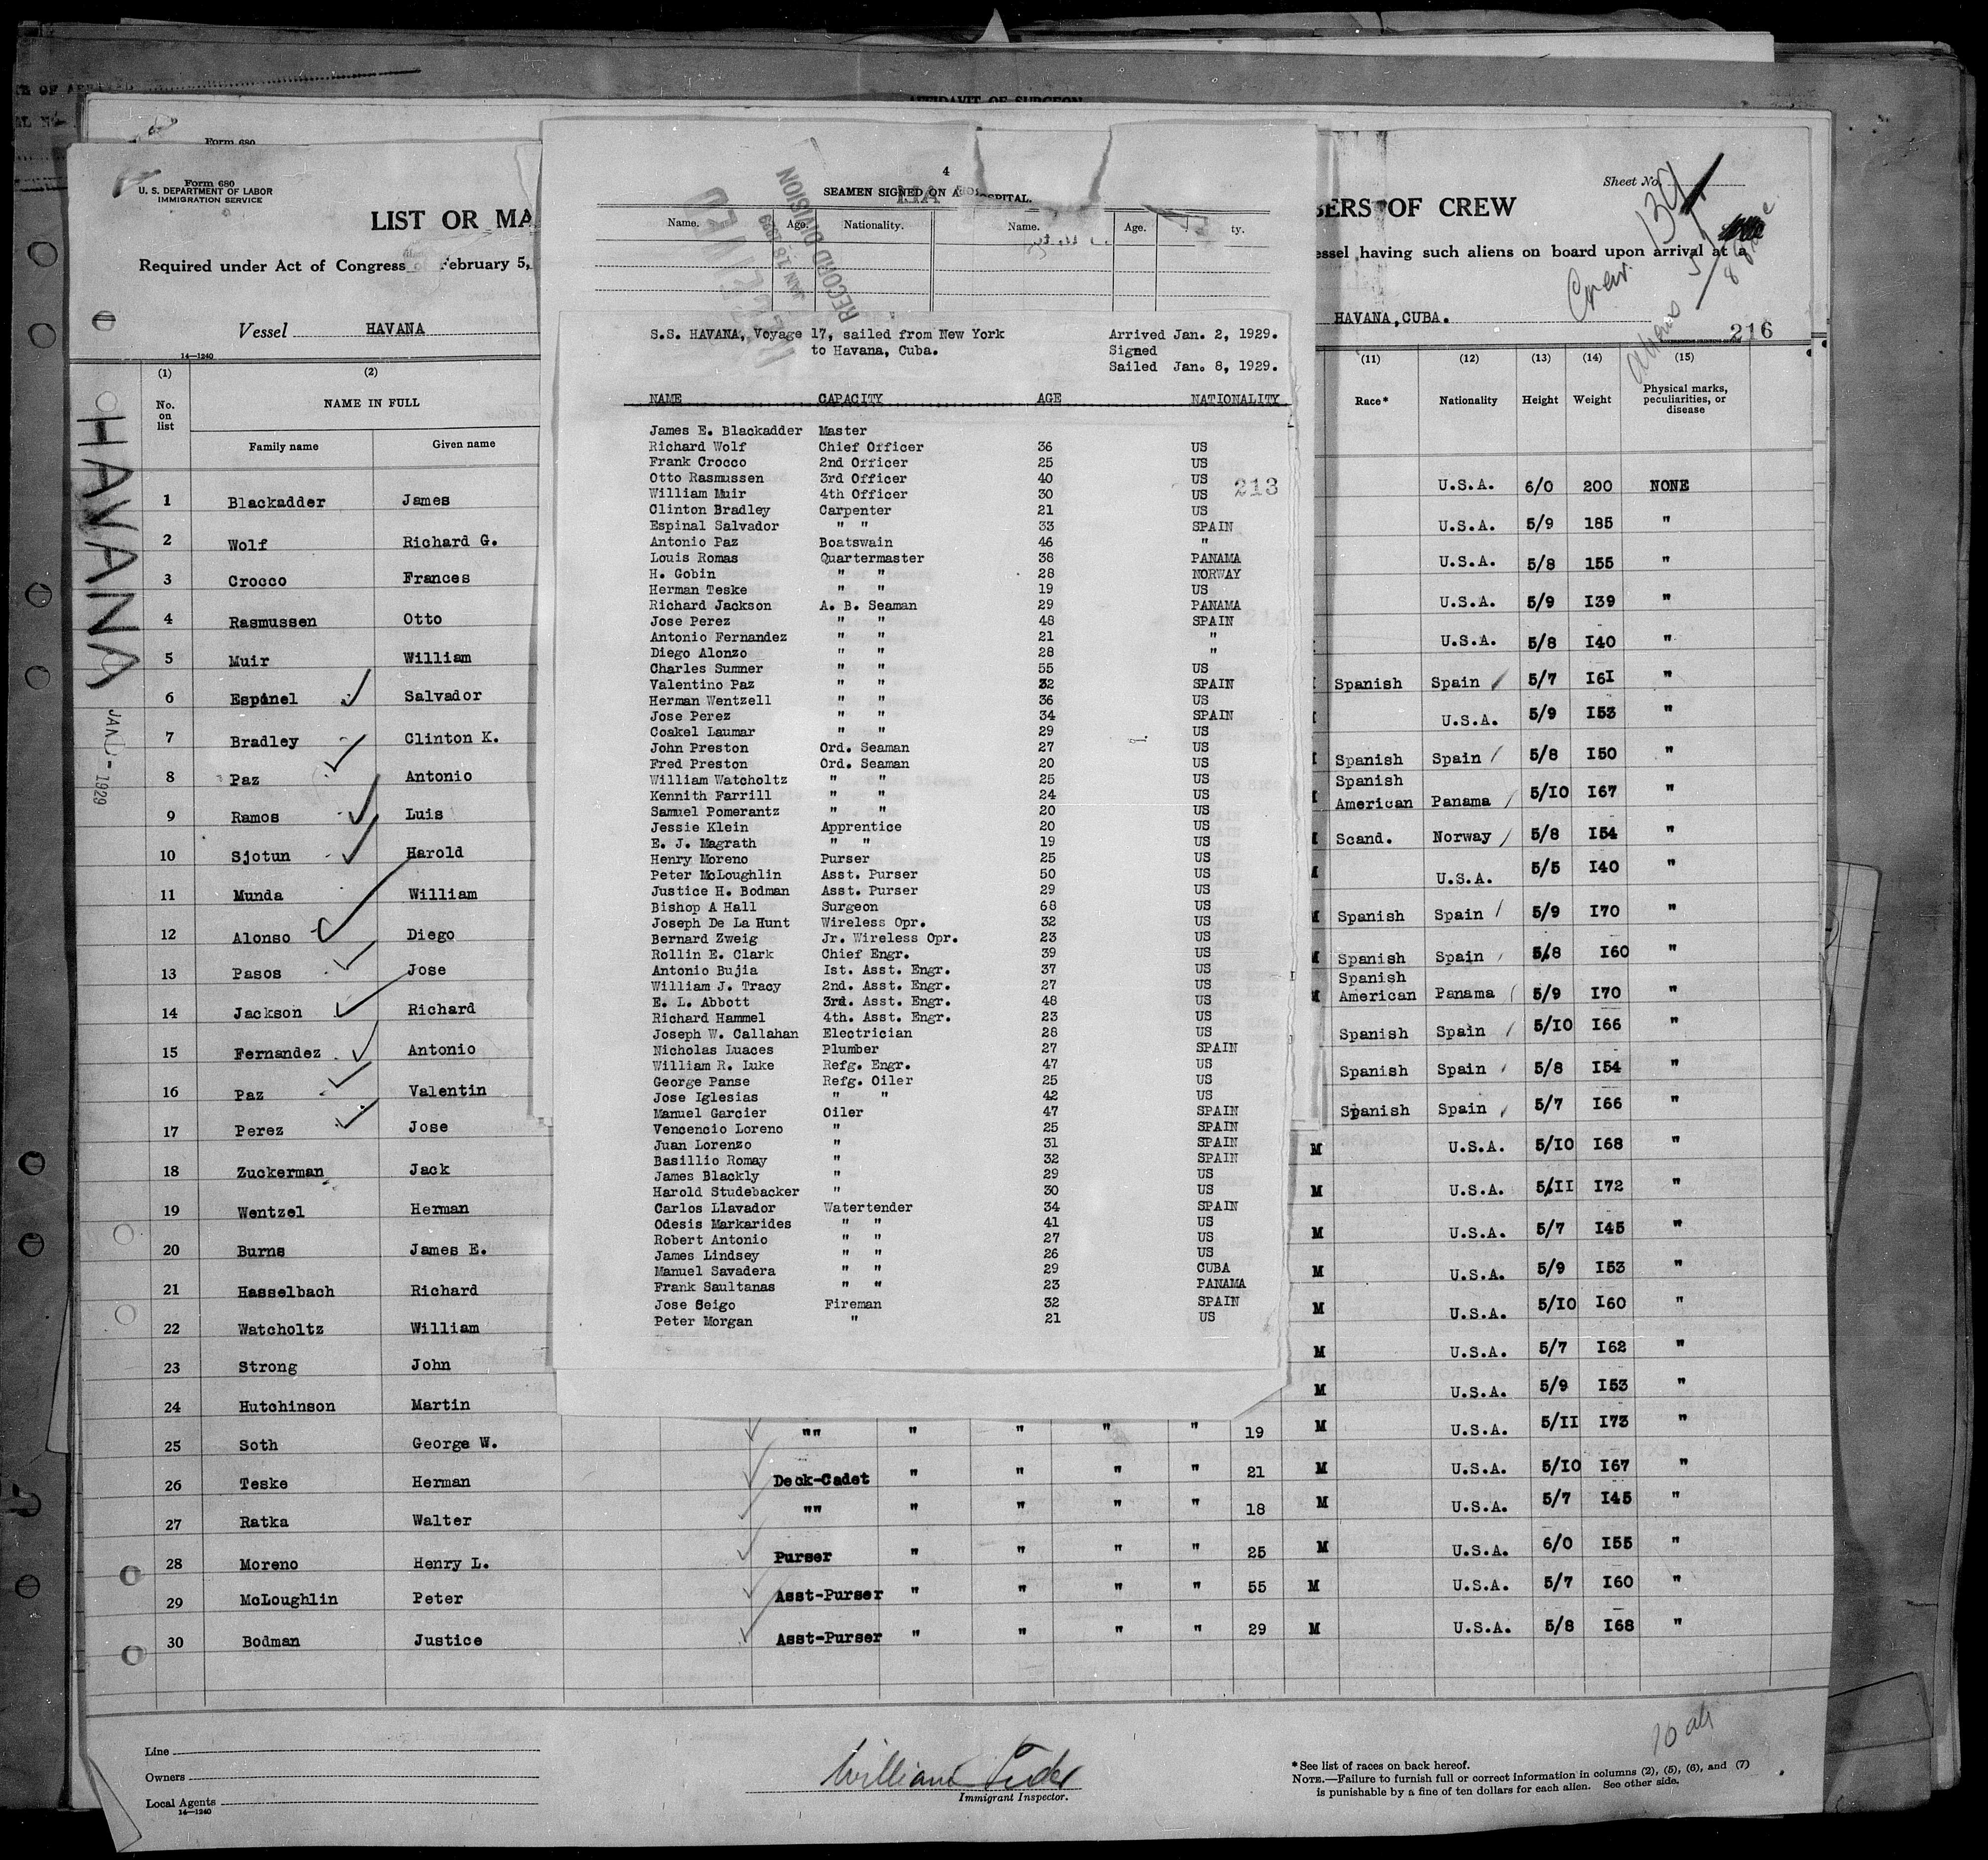 AFFIDAVIT OF SURGEON
Form 680
Form 680
U. S. DEPARTMENT OF LABOR
IMMIGRATION SERVICE
LIST OR MA
Required under Act of Congress of February 5,
Vessel HAVANA
14—1240
BERS OF CREW
Sheet No.
essel having such aliens on board upon arrival at a
HAVANA, CUBA.
Crew
Aliens
216
4
SEAMEN SIGNED ON A
OSPITAL.
Name. Age. Nationality. Name. Age. ty.
RECORD DIVISION
JAN 18 1929
S.S. HAVANA, Voyage 17, sailed from New York Arrived Jan. 2, 1929.
to Havana, Cuba. Signed
Sailed Jan. 8, 1929.
NAME CAPACITY AGE NATIONALITY
James E. Blackadder Master
Richard Wolf Chief Officer 36 US
Frank Crocco 2nd Officer 25 US
Otto Rasmussen 3rd Officer 40 US
213
William Muir 4th Officer 30 US
Clinton Bradley Carpenter 21 US
Espinal Salvador " " 33 SPAIN
Antonio Paz Boatswain 46 "
Louis Romas Quartermaster 38 PANAMA
H. Gobin " " 28 NORWAY
Herman Teske " " 19 US
Richard Jackson A. B. Seaman 29 PANAMA
Jose Perez " " 48 SPAIN
Antonio Fernandez " " 21 "
Diego Alonzo " " 28 "
Charles Sumner " " 55 US
Valentino Paz " " 32 SPAIN
Herman Wentzell " " 36 US
Jose Perez " " 34 SPAIN
Coakel Laumar " " 29 US
John Preston Ord. Seaman 27 US
Fred Preston Ord. Seaman 20 US
William Watcholtz " " 25 US
Kennith Farrill " " 24 US
Samuel Pomerantz " " 20 US
Jessie Klein Apprentice 20 US
E. J. Magrath " " 19 US
Henry Moreno Purser 25 US
Peter McLoughlin Asst. Purser 50 US
Justice H. Bodman Asst. Purser 29 US
Bishop A Hall Surgeon 68 US
Joseph De La Hunt Wireless Opr. 32 US
Bernard Zweig Jr. Wireless Opr. 23 US
Rollin E. Clark Chief Engr. 39 US
Antonio Bujia Ist. Asst. Engr. 37 US
William J. Tracy 2nd. Asst. Engr. 27 US
E. L. Abbott 3rd. Asst. Engr. 48 US
Richard Hammel 4th. Asst. Engr. 23 US
Joseph W. Callahan Electrician 28 US
Nicholas Luaces Plumber 27 SPAIN
William R. Luke Refg. Engr. 47 US
George Panse Refg. Oiler 25 US
Jose Iglesias " " 42 US
Manuel Garcier Oiler 47 SPAIN
Vencencio Loreno " 25 SPAIN
Juan Lorenzo " 31 SPAIN
Basillio Romay " 32 SPAIN
James Blackly " 29 US
Harold Studebacker " 30 US
Carlos Llavador Watertender 34 SPAIN
Odesis Markarides " " 41 US
Robert Antonio " " 27 US
James Lindsey " " 26 US
Manuel Savadera " " 29 CUBA
Frank Saultanas " " 23 PANAMA
Jose Seigo Fireman 32 SPAIN
Peter Morgan " 21 US
HAVANA
1929
(1) (2) (11) (12) (13) (14) (15)
No. on list NAME IN FULL Race* Nationality Height Weight Physical marks, peculiarities, or disease
Family name Given name
1 Blackadder James U.S.A. 6/0 200 NONE
2 Wolf Richard G. U.S.A. 5/9 185 "
3 Crocco Frances U.S.A. 5/8 155 "
4 Rasmussen Otto U.S.A. 5/9 I39 "
5 Muir William U.S.A. 5/8 I40 "
6 Espinel Salvador Spanish Spain 5/7 I6I "
7 Bradley Clinton K. U.S.A. 5/9 I53 "
8 Paz Antonio Spanish Spain 5/8 I50 "
9 Ramos Luis Spanish American Panama 5/I0 I67 "
10 Sjotun Harold M Scand. Norway 5/8 I54 "
11 Munda William M U.S.A. 5/5 I40 "
12 Alonso Diego M Spanish Spain 5/9 I70 "
13 Pasos Jose M Spanish Spain 5/8 I60 "
14 Jackson Richard M Spanish American Panama 5/9 I70 "
15 Fernandez Antonio Spanish Spain 5/I0 I66 "
16 Paz Valentin Spanish Spain 5/8 I54 "
17 Perez Jose Spanish Spain 5/7 I66 "
18 Zuckerman Jack M U.S.A. 5/I0 I68 "
19 Wentzel Herman M U.S.A. 5/II I72 "
20 Burns James E. M U.S.A. 5/7 I45 "
21 Hasselbach Richard M U.S.A. 5/9 I53 "
22 Watcholtz William M U.S.A. 5/I0 I60 "
23 Strong John M U.S.A. 5/7 I62 "
24 Hutchinson Martin M U.S.A. 5/9 I53 "
25 Soth George W. "" " " " " 19 M U.S.A. 5/II I73 "
26 Teske Herman Deck-Cadet " " " " 21 M U.S.A. 5/I0 I67 "
27 Ratka Walter "" " " " " 18 M U.S.A. 5/7 I45 "
28 Moreno Henry L. Purser " " " " 25 M U.S.A. 6/0 I55 "
29 McLoughlin Peter Asst-Purser " " " " 55 M U.S.A. 5/7 I60 "
30 Bodman Justice Asst-Purser " " " " 29 M U.S.A. 5/8 I68 "
Line
Owners
Local Agents
14—1240
Immigrant Inspector.
*See list of races on back hereof.
NOTE.—Failure to furnish full or correct information in columns (2), (5), (6), and (7)
is punishable by a fine of ten dollars for each alien. See other side.